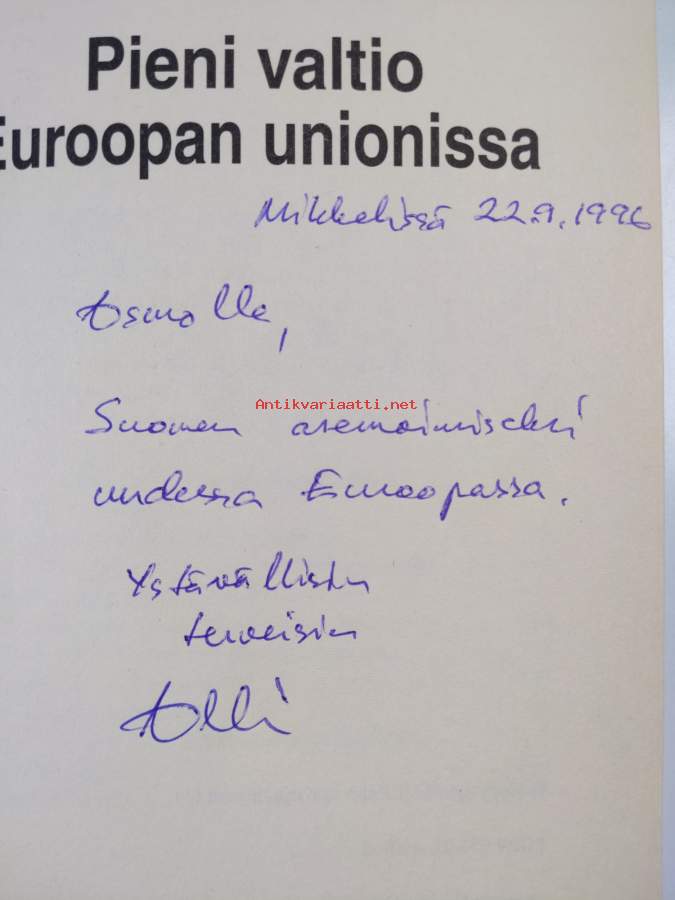 Pieni valtio
Euroopan unionissa
Mikkelissä 22.9.1996
Osmolle,
Antikvariaatti.net
Suomen asemoimiseksi
uudessa Euroopassa.
Ystävällisin
terveisin
Olli